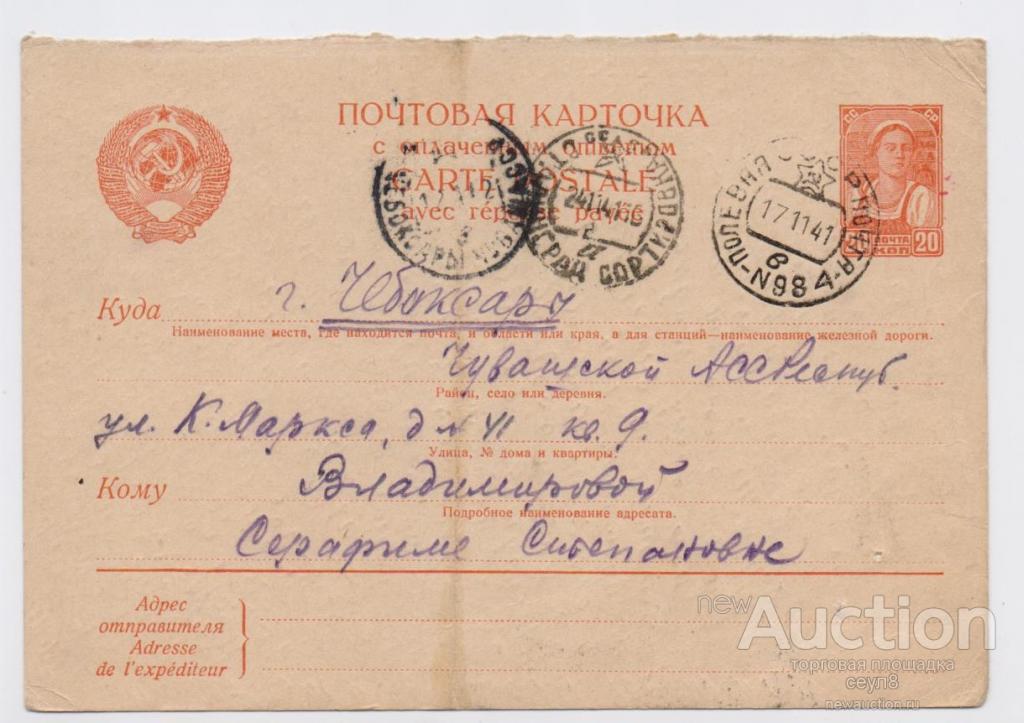 ПОЧТОВАЯ КАРТОЧКА
с оплаченным ответом
CARTE POSTALE
avec réponse payée
СС СР
ПОЧТА
20 КОП
17 11 41
в
N984
Куда г. Чебоксары
Наименование места, где находится почта, и области или края, а для станций—наименование железной дороги.
Чувашской АССРеспуб.
Район, село или деревня.
ул. К. Маркса, д № 41 кв. 9.
Улица, № дома и квартиры.
Кому Владимировой
Подробное наименование адресата.
Серафиме Степановне
Адрес
отправителя
Adresse
de l'expéditeur
newAuction
торговая площадка
сеул8
newauction.ru